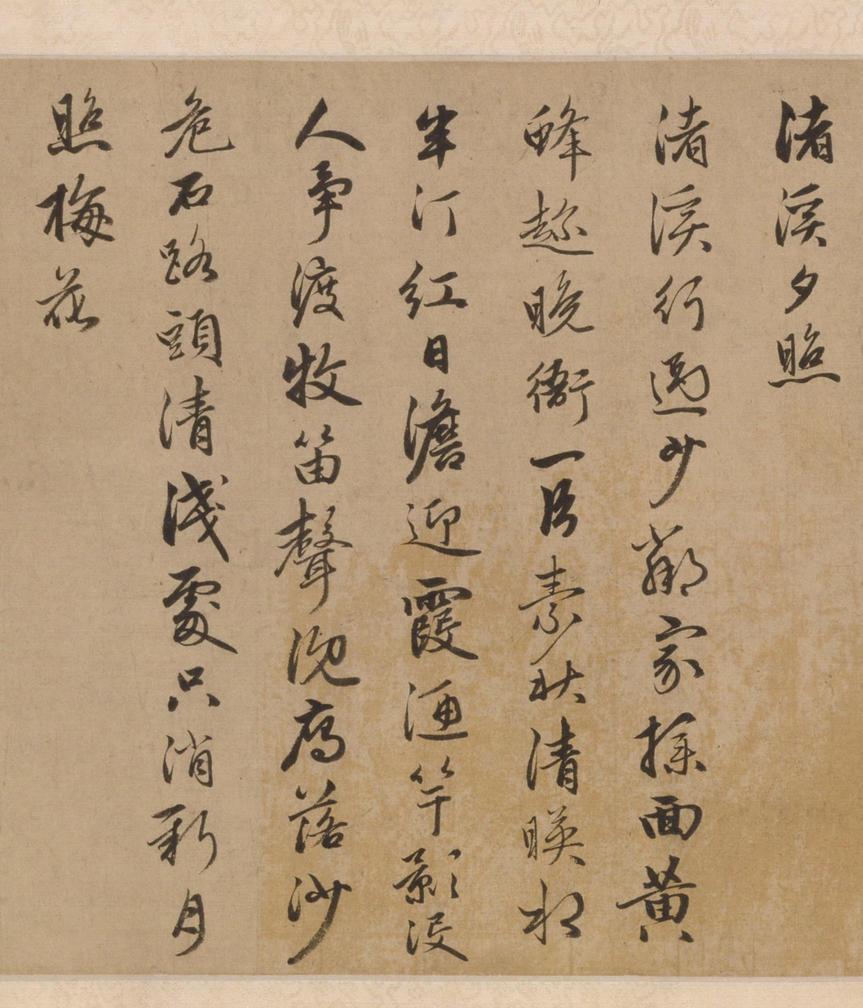 渚溪夕照
渚溪行過少鄰家撲面黃
蜂趂晚衙一片素秋清暎水
半汀紅日澹迎霞漁竿影没
人爭渡牧笛聲沉鴈落沙
危石路頭清淺處只消新月
照梅花